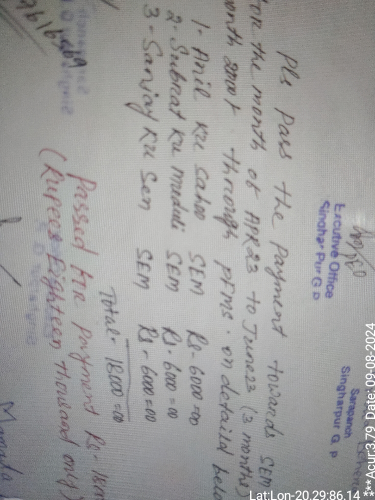 Executive Office
Singhar Pur G P
Sarapanch
Singharpur G. P
Pls Pass the Payment towards SEM
for the month of APR23 to June23 (3 months)
month 2000/- through PFMS. on detaild belo
1- Anil Ku Sahoo SEM Rs-6000=00
2- Subrat Ku muduli SEM Rs-6000=00
3- Sanjay Ku Sen SEM Rs-6000=00
Total- 18000=00
Passed for payment Rs 18
(Rupees Eighteen thousand only)
Lat:Lon-20.29:86.14
***Acur:3.79 Date: 09-08-2024